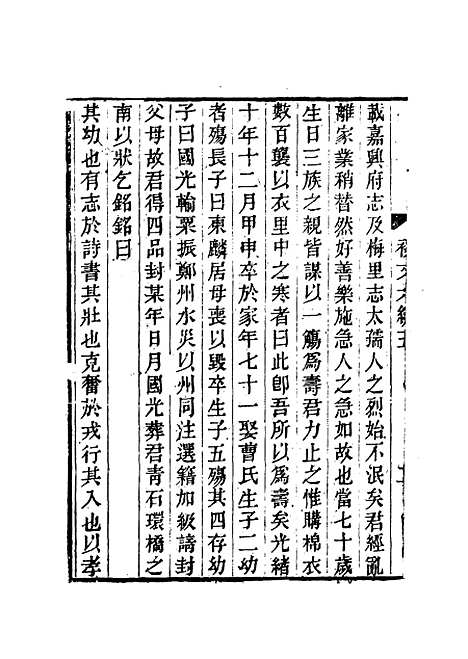 載嘉興府志及梅里志太孺人之烈始不泯矣君經亂
離家業稍替然好善樂施急人之急如故也當七十歲
生日三族之親皆謀以一觴爲壽君力止之惟購棉衣
數百襲以衣里中之寒者曰此卽吾所以爲壽矣光緒
十年十二月甲申卒於家年七十一娶曹氏生子二幼
者殤長子曰東麟居母喪以毀卒生子五殤其四存幼
子曰國光輸粟振鄭州水災以州同注選籍加級請封
父母故君得四品封某年日月國光葬君靑石環橋之
南以狀乞銘銘曰
其幼也有志於詩書其壯也克奮於戎行其入也以孝